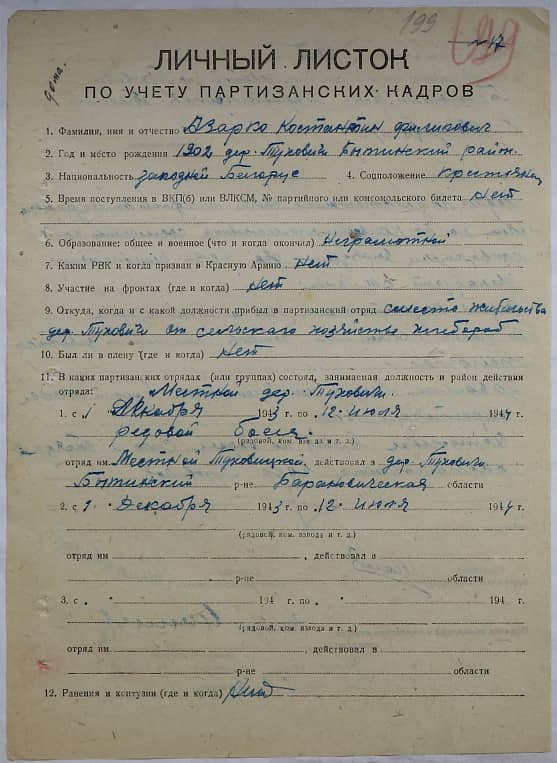 199
199
17
дома.
ЛИЧНЫЙ ЛИСТОК
ПО УЧЕТУ ПАРТИЗАНСКИХ КАДРОВ
1. Фамилия, имя и отчество Азарко Костантин Филипович
2. Год и место рождения 1902 дер. Туховичи Бытинский район.
3. Национальность западной Беларус 4. Соцположение Крестьянец
5. Время поступления в ВКП(б) или ВЛКСМ, № партийного или комсомольского билета Нет
6. Образование: общее и военное (что и когда окончил) Неграмотной
7. Каким РВК и когда призван в Красную Армию Нет
8. Участие на фронтах (где и когда) Нет
9. Откуда, когда и с какой должности прибыл в партизанский отряд сместо жительства
дер. Туховичи от сельского хозяйства хлебороб
10. Был ли в плену (где и когда) Нет
11. В каких партизанских отрядах (или группах) состоял, занимаемая должность и район действия
отряда: Местной дер. Туховичи.
1. с 1 Декабря 1943 г. по 12 июля 1944 г.
редовой боец.
(рядовой, ком. взвода и т. д.)
отряд им. Местной Туховицкой, действовал в дер. Туховичи
Бытинский р-не Барановическая области
2. с 1 Декабря 1943 г. по 12 июля 1944 г.
(рядовой, ком. взвода и т. д.)
отряд им. , действовал в
р-не области
3. с 194 г. по 194 г.
(рядовой, ком. взвода и т. д.)
отряд им. , действовал в
р-не области
12. Ранения и контузии (где и когда) Нет